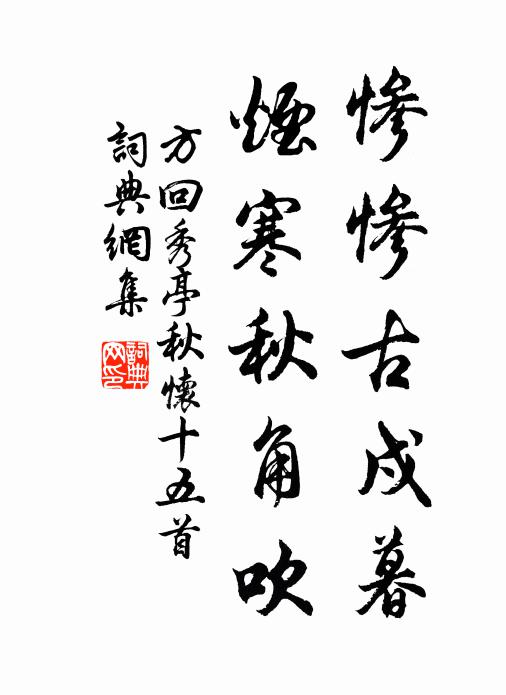 惨惨古戍暮
煙寒秋角吹
方回秀亭秋懷十五首
詞典網集
詞典
网印